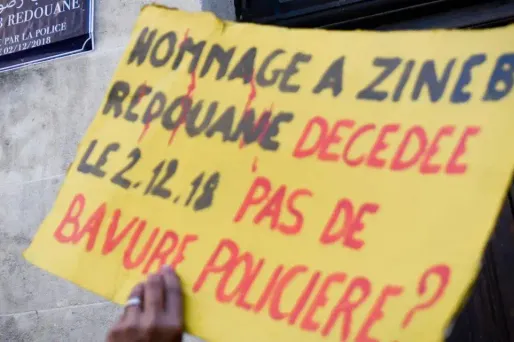 B REDOUANE
PAR LA POLICE
02/12/2018
HOMMAGE A ZINEB
REDOUANE DECEDEE
LE 2.12.18 PAS DE
BAVURE POLICIERE ?